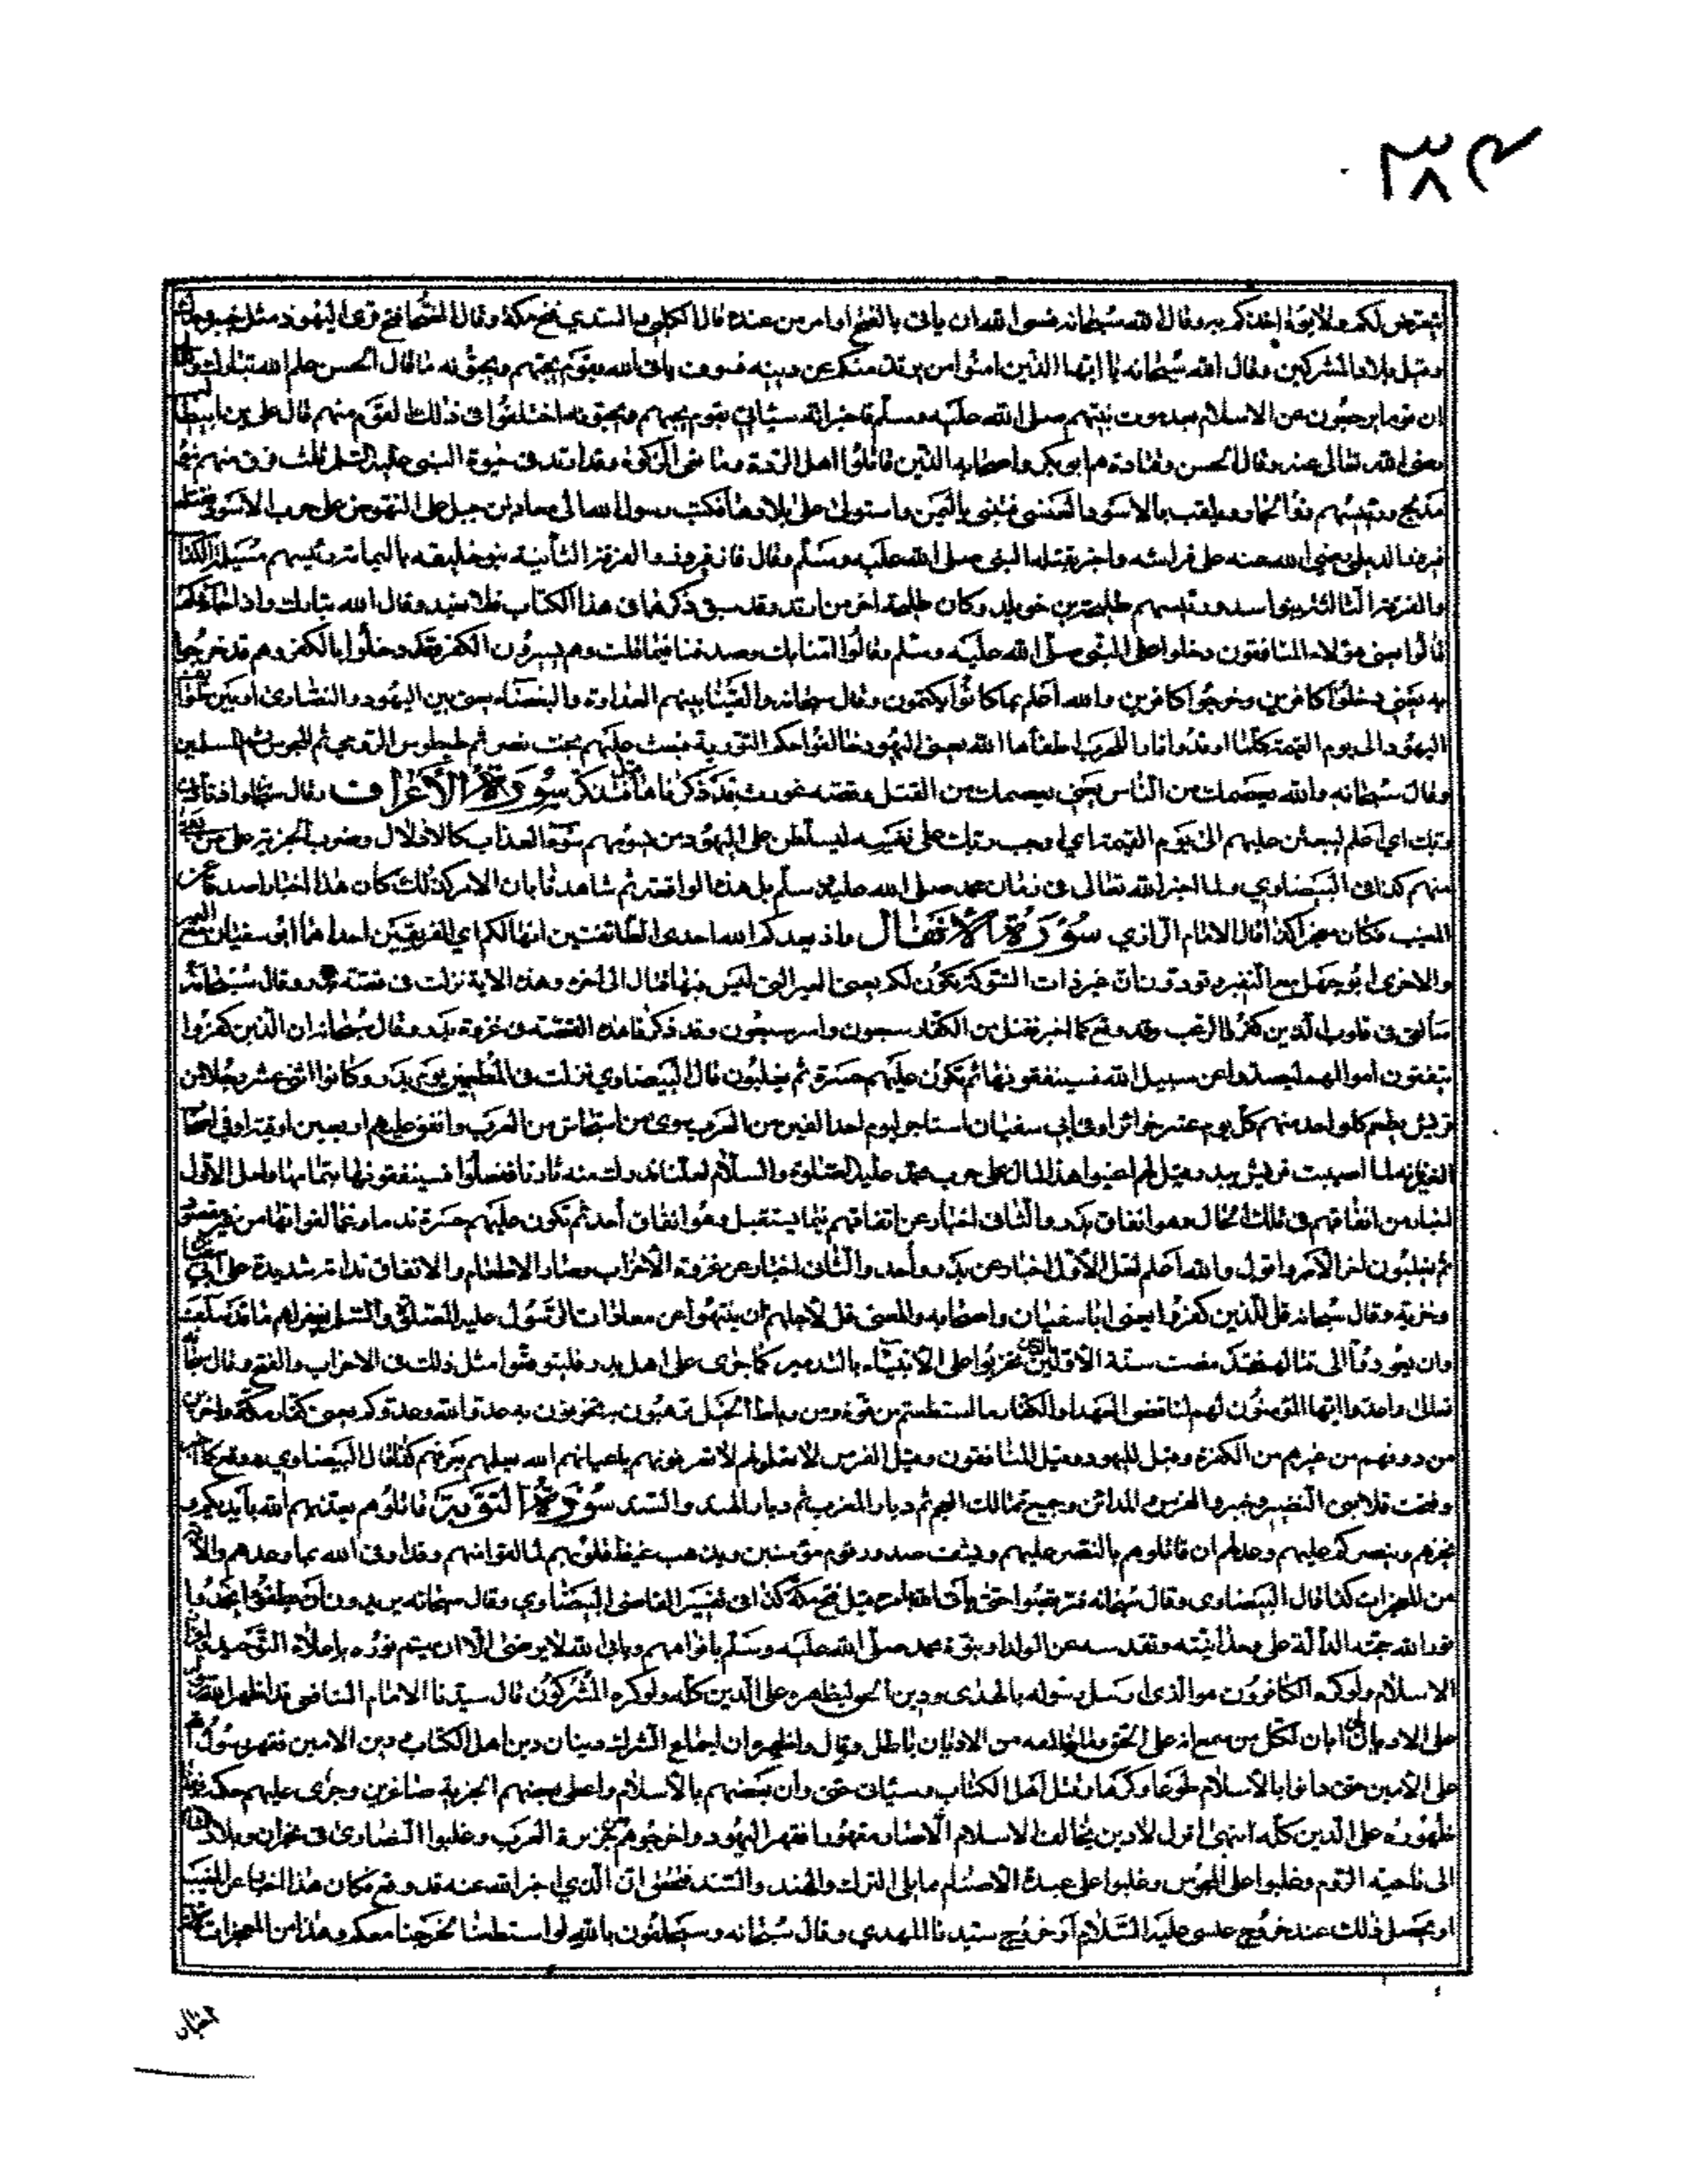 ٣٨
يتعرض لكم ولا يؤاخذكم به وقال الله سبحانه فعسى الله ان ياتى بالفتح او امر من عنده قال الكلبي والسدي فتح مكة وقال الضحاك فتح قرى اليهود مثل خيبر
وقيل بلاد المشركين وقال الله سبحانه يا ايها الذين امنوا من يرتد منكم عن دينه فسوف ياتى الله بقوم يحبهم ويحبونه ما قال الحسن علم الله تبارك
ان قوما يرجعون عن الاسلام بعد موت نبيهم صلى الله عليه وسلم فاخبر انه سياتى بقوم يحبهم ويحبونه اختلفوا فى ذلك القوم منهم قال على بن ابيطالب
رضى الله تعالى عنه وقال الحسن وقتادة هم ابو بكر واصحابه الذين قاتلوا اهل الردة ومانعى الزكوة وقد ارتد فى حيوة النبى عليه السلم ثلث فرق منهم
مذحج ورئيسهم ذو الحمار ويلقب بالاسود العنسى فتنبى باليمن واستولى على بلادها فكتب رسول الله الى معاذ بن جبل على النهوض على حرب الاسود فقتله
فيروز الديلمى رضي الله عنه على فراشه واخبر بقتله النبى صلى الله عليه وسلم وقال فاز فيروز والفرقة الثانية بنو حنيفه باليمامة ورئيسهم مسيلمة الكذاب
والفرقة الثالثة بنوا اسد ورئيسهم طليحة بن خويلد وكان طليحة اخر من ارتد وقد سبق ذكرها فى هذا الكتاب فلا نعيد وقال الله تبارك واذا جاؤكم
قالوا يعنى هؤلاء المنافقون دخلوا على النبى صلى الله عليه وسلم وقالوا امنا بك وصدقنا فيما قلت وهم يسرون الكفر وقد دخلوا بالكفر وهم قد خرجوا
به يعنى دخلوا كافرين وخرجوا كافرين والله اعلم بما كانوا يكتمون وقال سبحانه والقينا بينهم العداوة والبغضاء يعنى بين اليهود والنصارى او بين
اليهود الى يوم القيمة كلما اوقدوا نارا للحرب اطفأها الله يعنى اليهود خالفوا حكم التورية فبعث عليهم بخت نصر ثم طيطوس الرومي ثم المجوس ثم المسلمين
وقال سبحانه والله يعصمك من الناس يعنى يعصمك من القتل وقصته غورث قد ذكرناها سورة الأعراف وقال سبحانه واذ تأذن
ربك اي اعلم ليبعثن عليهم الى يوم القيمة اي اوجب ربك على نفسه ليسلطن على اليهود من يسومهم سوء العذاب كالاذلال وضرب الجزية على من
منهم كذا فى البيضاوي ولما اخبر الله تعالى فى زمان محمد صلى الله عليه وسلم بل هذه الواقعة ثم شاهدنا بان الامر كذلك كان هذا اخبارا صدقا عن
الغيب فكان معجزا كذا قال الامام الرازي سورة الأنفال واذ يعدكم الله احدى الطائفتين انها لكم اي الفريقين احداهما ابو سفيان مع العير
والاخرى ابو جهل مع النفير وتودون ان غير ذات الشوكة تكون لكم يعنى العير التى ليس فيها قتال الى اخره وهذه الاية نزلت فى قصة بدر وقال سبحانه
سألقى فى قلوب الذين كفروا الرعب وقد وقع كما اخبر فقتل من الكفار سبعون واسر سبعون وقد ذكرنا هذه القصة فى غزوة بدر وقال سبحانه ان الذين كفروا
ينفقون اموالهم ليصدوا عن سبيل الله فسينفقونها ثم تكون عليهم حسرة ثم يغلبون قال البيضاوي نزلت فى المطعمين يوم بدر وكانوا اثنى عشر رجلا من
قريش يطعم كل واحد منهم كل يوم عشر جزائر او فى ابى سفيان استاجر ليوم احد الفين من العرب سوى من استجاش من العرب وانفق عليهم اربعين اوقية او فى اصحاب
العير فانه لما اصيبت قريش ببدر قيل لهم اعينوا هذا المال على حرب محمد عليه الصلوة والسلام لعلنا ندرك منه ثارنا ففعلوا فسينفقونها بتمامها ولعل الاول
اخبار عن انفاقهم فى تلك الحال وهو انفاق بدر والثانى اخبار عن انفاقهم فيما يستقبل وهو انفاق أحد ثم تكون عليهم حسرة ندما وغما لفواتها من غير مقصود
ثم يغلبون اخر الامر واقول والله اعلم لعل الاول اخبار عن بدر وأحد والثانى اخبار عن غزوة الأحزاب وصار الاطعام والانفاق ندامة شديدة على ابى
وخزيه وقال سبحانه قل للذين كفروا يعنى ابا سفيان واصحابه والمعنى قل لأجلهم ان ينتهوا عن معادات الرسول عليه الصلوة والسلم يغفر لهم ما قد سلف
وان يعودوا الى قتاله فقد مضت سنة الأولين تحزبوا على الأنبياء بالتدمير كما جرى على اهل بدر فليتوقعوا مثل ذلك فى الاحزاب والفتح وقال
واعدوا ايها المؤمنون لهم لناقضى العهد او الكفار ما استطعتم من قوة ومن رباط الخيل ترهبون به تخوفون به عدو الله وعدوكم يعنى كفار مكة واخرين
من دونهم من غيرهم من الكفرة وقيل اليهود وقيل المنافقون وقيل الفرس لا تعلمونهم لا تعرفونهم باعيانهم الله يعلمهم يعرفهم كذا قال البيضاوي
وفتحت قلاع بنى النضير وخيبر والفرس والمدائن وجميع ممالك العجم ثم ديار المغرب ثم ديار الهند والسند سورة التوبة قاتلوهم يعذبهم الله بايديكم
ويخزهم وينصركم عليهم وعدلهم ان قاتلوهم بالنصر عليهم ويشف صدور قوم مؤمنين ويذهب غيظ قلوبهم لما لقوا منهم وقد اوفى الله بما وعدهم والاية
من المعجزات كذا قال البيضاوى وقال سبحانه فتربصوا حتى ياتى الله بامره قيل فتح مكة كذا فى تفسير القاضى البيضاوي وقال سبحانه يريدون ان يطفئوا
نور الله حجته الدالة على وحدانيته وتقدسه عن الولد او نبوة محمد صلى الله عليه وسلم بافواههم ويابى الله لا يرضى الا ان يتم نوره باعلاء التوحيد
الاسلام ولو كره الكافرون هو الذى ارسل رسوله بالهدى ودين الحق ليظهره على الدين كله ولو كره المشركون قال سيدنا الامام الشافعى قد اظهر الله
على الاديان ابان لكل من سمع انه على الحق وما خالفه من الاديان باطل وقال واظهره ان اجماع الشرك دينان دين اهل الكتاب ودين الاميين فقهر رسول
على الأميين حتى دانوا بالأسلام طوعا وكرها وقتل اهل الكتاب وسبى حتى دان بعضهم بالأسلام واعطى بعضهم الجزية صاغرين وجرى عليهم حكمه
ظهوره على الدين كله انتهى اقول لا دين يخالف الاسلام الا صار مقهورا فقهر اليهود واخرجوهم من جزيرة العرب وغلبوا النصارى فى نجران وبلاد
الى ناحية الروم وغلبوا على المجوس وغلبوا على عبدة الأصنام ما يلى الترك والهند والسند فظهر ان الذي اخبر الله عنه قد وقع فكان هذا اخبارا عن الغيب
او يحصل ذلك عند خروج عيسى عليه السلام او خروج سيدنا المهدي وقال سبحانه وسيحلفون بالله لو استطعنا لخرجنا معكم وهذا من المعجزات